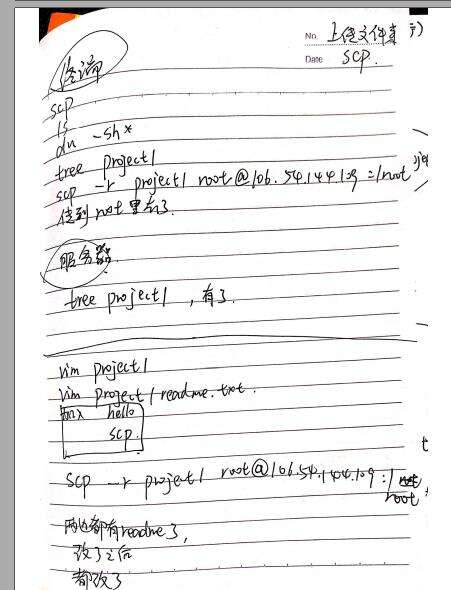 No. 上传文件
Date scp.
终端
scp
ls
du -sh*
tree project1
scp -r project1 root@106.54.144.109:/root
传到root里去了.
服务器.
tree project1 , 有了.
vim project1
vim project1 readme.txt.
加入 hello
scp.
scp -r project1 root@106.54.144.109:/
root
两边都有readme了,
改了之后
都改了